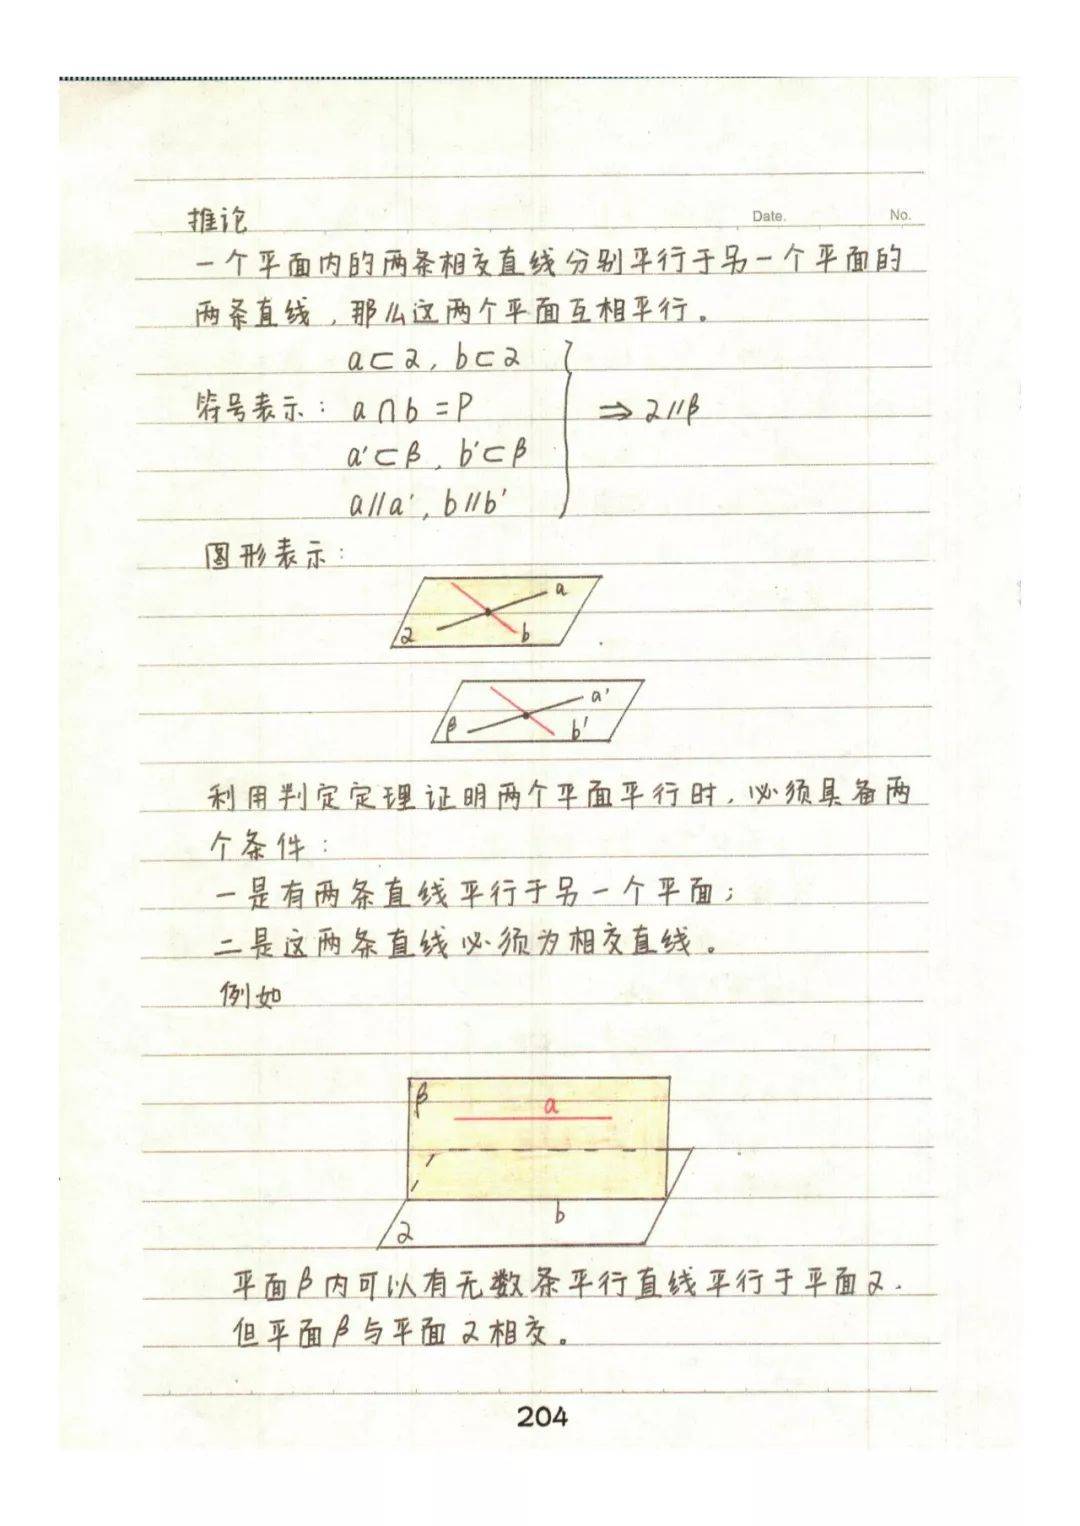 Date. No.
推论
一个平面内的两条相交直线分别平行于另一个平面的
两条直线,那么这两个平面互相平行。
a⊂α, b⊂α
符号表示: a∩b=P ⇒α//β
a'⊂β, b'⊂β
a//a', b//b'
图形表示:
a
α b
a'
β b'
利用判定定理证明两个平面平行时,必须具备两
个条件:
一是有两条直线平行于另一个平面;
二是这两条直线必须为相交直线。
例如
β a
b
α
平面β内可以有无数条平行直线平行于平面α.
但平面β与平面α相交。
204